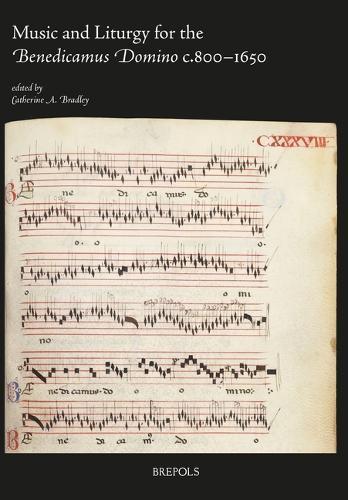 Music and Liturgy for the
Benedicamus Domino c.800–1650
edited by
Catherine A. Bradley
CXXXVIII
Be ne di ca mus do
o o o
o o mi
no
Benedicamus do o mino
Be ne di cam do o
BREPOLS